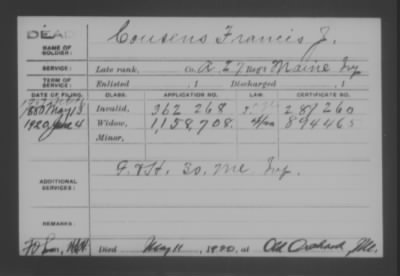 DEAD
NAME OF SOLDIER: Cousens Francis J.
SERVICE: Late rank, Co. A. 27 Reg't Maine Inf.
TERM OF SERVICE: Enlisted , 1 Discharged , 1
DATE OF FILING. CLASS. APPLICATION NO. LAW. CERTIFICATE NO.
1880 May 13 Invalid, 362 268 281 260
1920 June 4 Widow, 1,158,708. 894465
Minor,
ADDITIONAL SERVICES: G & H. 30. Me Inf.
REMARKS:
Died May 11, 1920, at Old Orchard Me.